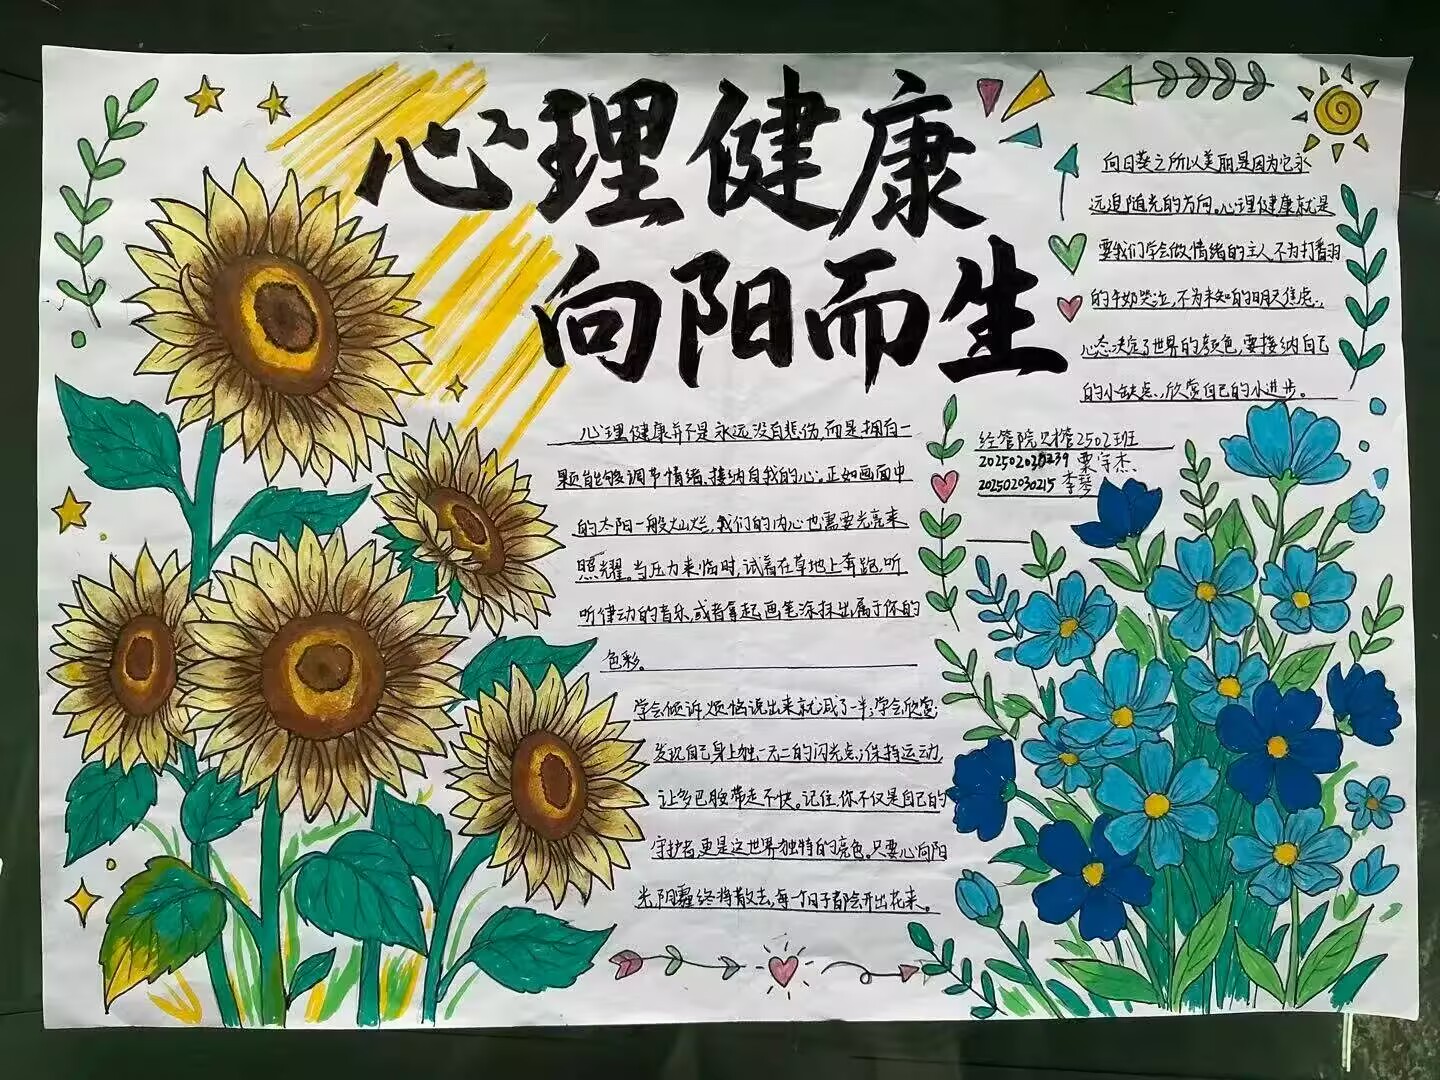 心理健康
向阳而生
向日葵之所以美丽是因为它永
远追随光的方向。心理健康就是
要我们学会做情绪的主人,不为打翻
的牛奶哭泣,不为未知的明天焦虑,
心态决定了世界的颜色,要接纳自己
的小缺点,欣赏自己的小进步。
经管院 2502班
202502020239 栗宇杰
202502030215 李
心理健康并不是永远没有悲伤,而是拥有一
颗能够调节情绪、接纳自我的心。正如画面中
的太阳一般灿烂,我们的内心也需要光亮来
照耀。当压力来临时,试着在草地上奔跑,听
听律动的音乐,或者拿起画笔涂抹出属于你的
色彩。
学会倾诉,烦恼说出来就减了一半;学会欣赏,
发现自己身上独一无二的闪光点;保持运动,
让多巴胺带走不快。记住,你不仅是自己的
守护者,更是这世界独特的亮色。只要心向阳
光,阴霾终将散去,每一个日子都会开出花来。